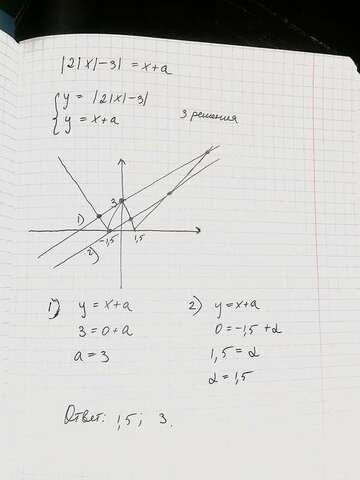 |2|x|-3| = x+a
{ y = |2|x|-3|
y = x+a
3 решения
3
1)
-1,5
1,5
2)
1) y = x+a
3 = 0+a
a = 3
2) y = x+a
0 = -1,5 + a
1,5 = a
a = 1,5
Ответ: 1,5; 3.